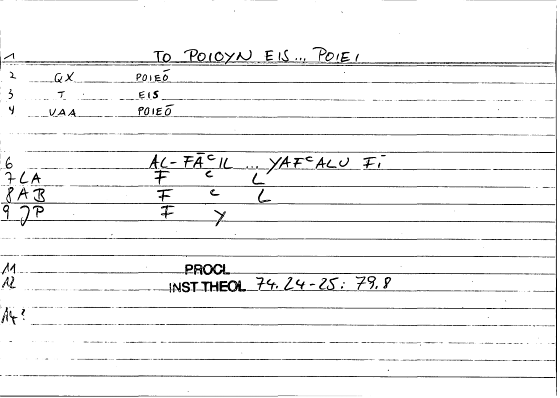 1 TO POIOYN EIS... POIEI
2 QX POIEŌ
3 T EIS
4 VAA POIEŌ
6 AL-FĀᶜIL ... YAFᶜALU FĪ
7 LA F ᶜ L
8 AB F ᶜ L
9 JP F Y
11 PROCL
12 INST THEOL 74.24-25: 79.8
14?